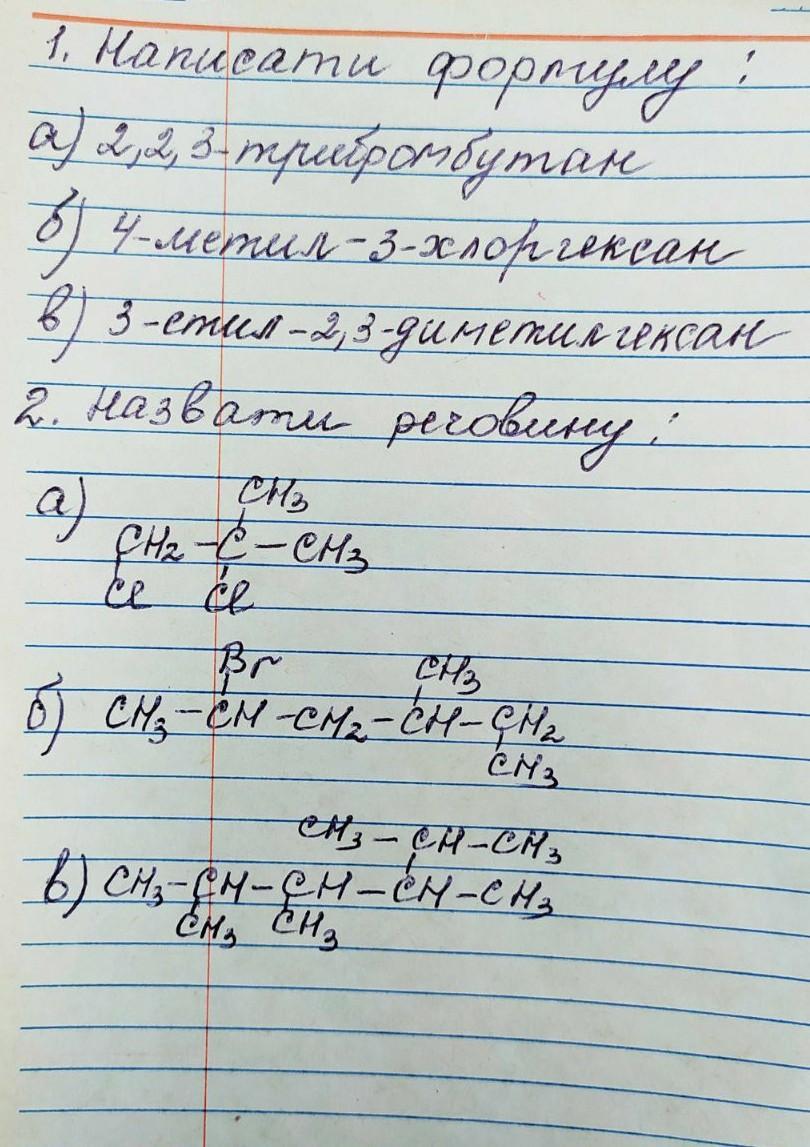 1. Написати формулу:
а) 2,2,3-трибромбутан
б) 4-метил-3-хлоргексан
в) 3-етил-2,3-диметилгексан
2. Назвати речовину:
а) CH3
CH2 - C - CH3
Cl Cl
Br CH3
б) CH3 - CH - CH2 - CH - CH2
CH3
CH3 - CH - CH3
в) CH3 - CH - CH - CH - CH3
CH3 CH3